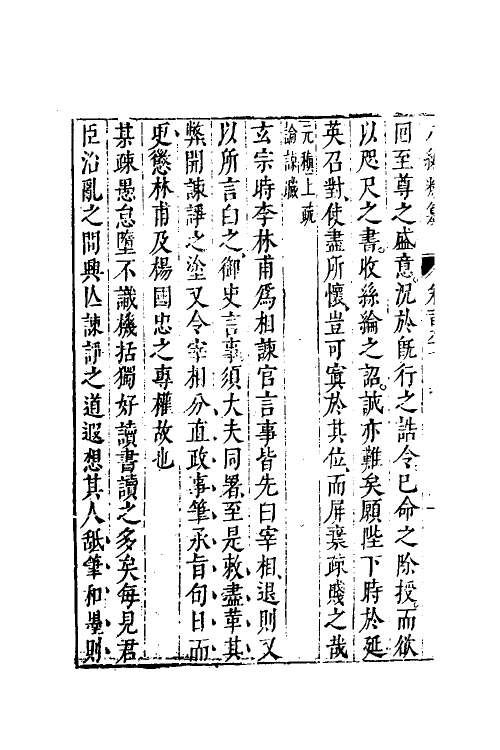 回至尊之盛意況於既行之誥令已命之除授而欲
以咫尺之書收絲綸之詔誠亦難矣願陛下時於延
英召對使盡所懷豈可寘於其位而屏棄疎賤之哉
元稹上疏
論諫職
玄宗時李林甫爲相諫官言事皆先白宰相退則又
以所言白之御史言事須大夫同署至是敕盡革其
弊開諫諍之塗又令宰相分直政事筆承旨旬日而
更懲林甫及楊國忠之專權故也
某疎愚怠墮不識機括獨好讀書讀之多矣每見君
臣治亂之間興亾諫諍之道遐想其人舐筆和墨則